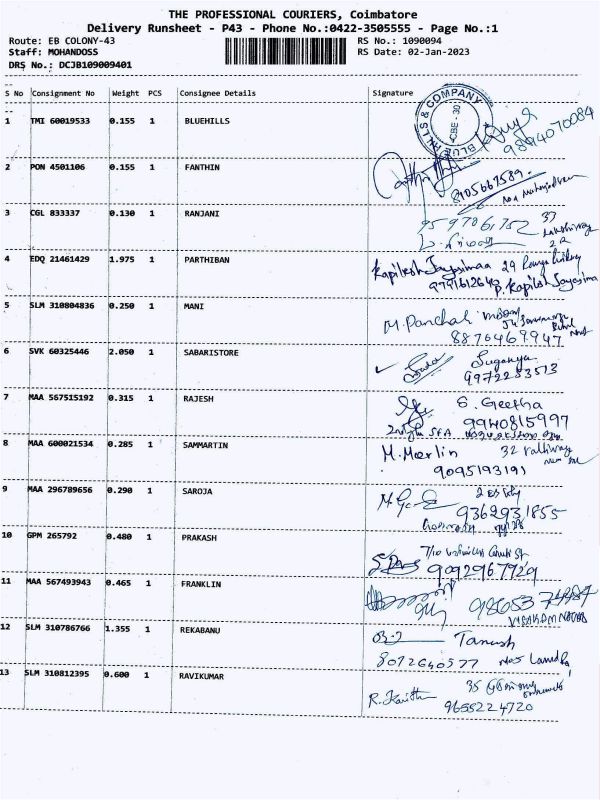 THE PROFESSIONAL COURIERS, Coimbatore
Delivery Runsheet - P43 - Phone No.:0422-3505555 - Page No.:1
Route: EB COLONY-43 RS No.: 1090094
Staff: MOHANDOSS RS Date: 02-Jan-2023
DRS No.: DCJB109009401
S No Consignment No Weight PCS Consignee Details Signature
BLUE HILLS & COMPANY CBE - 30
1 TMI 60019533 0.155 1 BLUEHILLS
9894070084
2 PON 4501106 0.155 1 FANTHIN
8105667589
3 CGL 833337 0.130 1 RANJANI
9597061752 33
4 EDQ 21461429 1.975 1 PARTHIBAN
Kapilesh Jayasimaa 29
9791612643 P. Kapilesh Jayasima
5 SLM 310804836 0.250 1 MANI
M. Panchali
8876469947
6 SVK 60325446 2.050 1 SABARISTORE
Suganya
9972253513
7 MAA 567515192 0.315 1 RAJESH
S. Geetha
9940815997
8 MAA 600021534 0.285 1 SAMMARTIN
M. Merlin 32
9095193191
9 MAA 296789656 0.290 1 SAROJA
9362931855
10 GPM 265792 0.480 1 PRAKASH
9092967929
11 MAA 567493943 0.465 1 FRANKLIN
12 SLM 310786766 1.355 1 REKABANU
Tanush
8072640577 No5
13 SLM 310812395 0.600 1 RAVIKUMAR
R. 35
9655224720